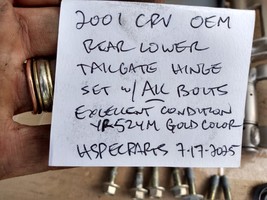 2001 CRV OEM
REAR LOWER
TAILGATE HINGE
SET w/ ALL BOLTS
EXCELLENT CONDITION
YR524M GOLD COLOR
HSPECPARTS 7-17-2025